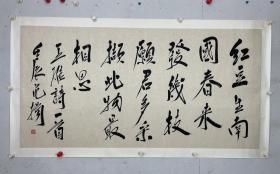 红豆生南
國春来
發幾枝
願君多采
擷此物最
相思
王維詩一首